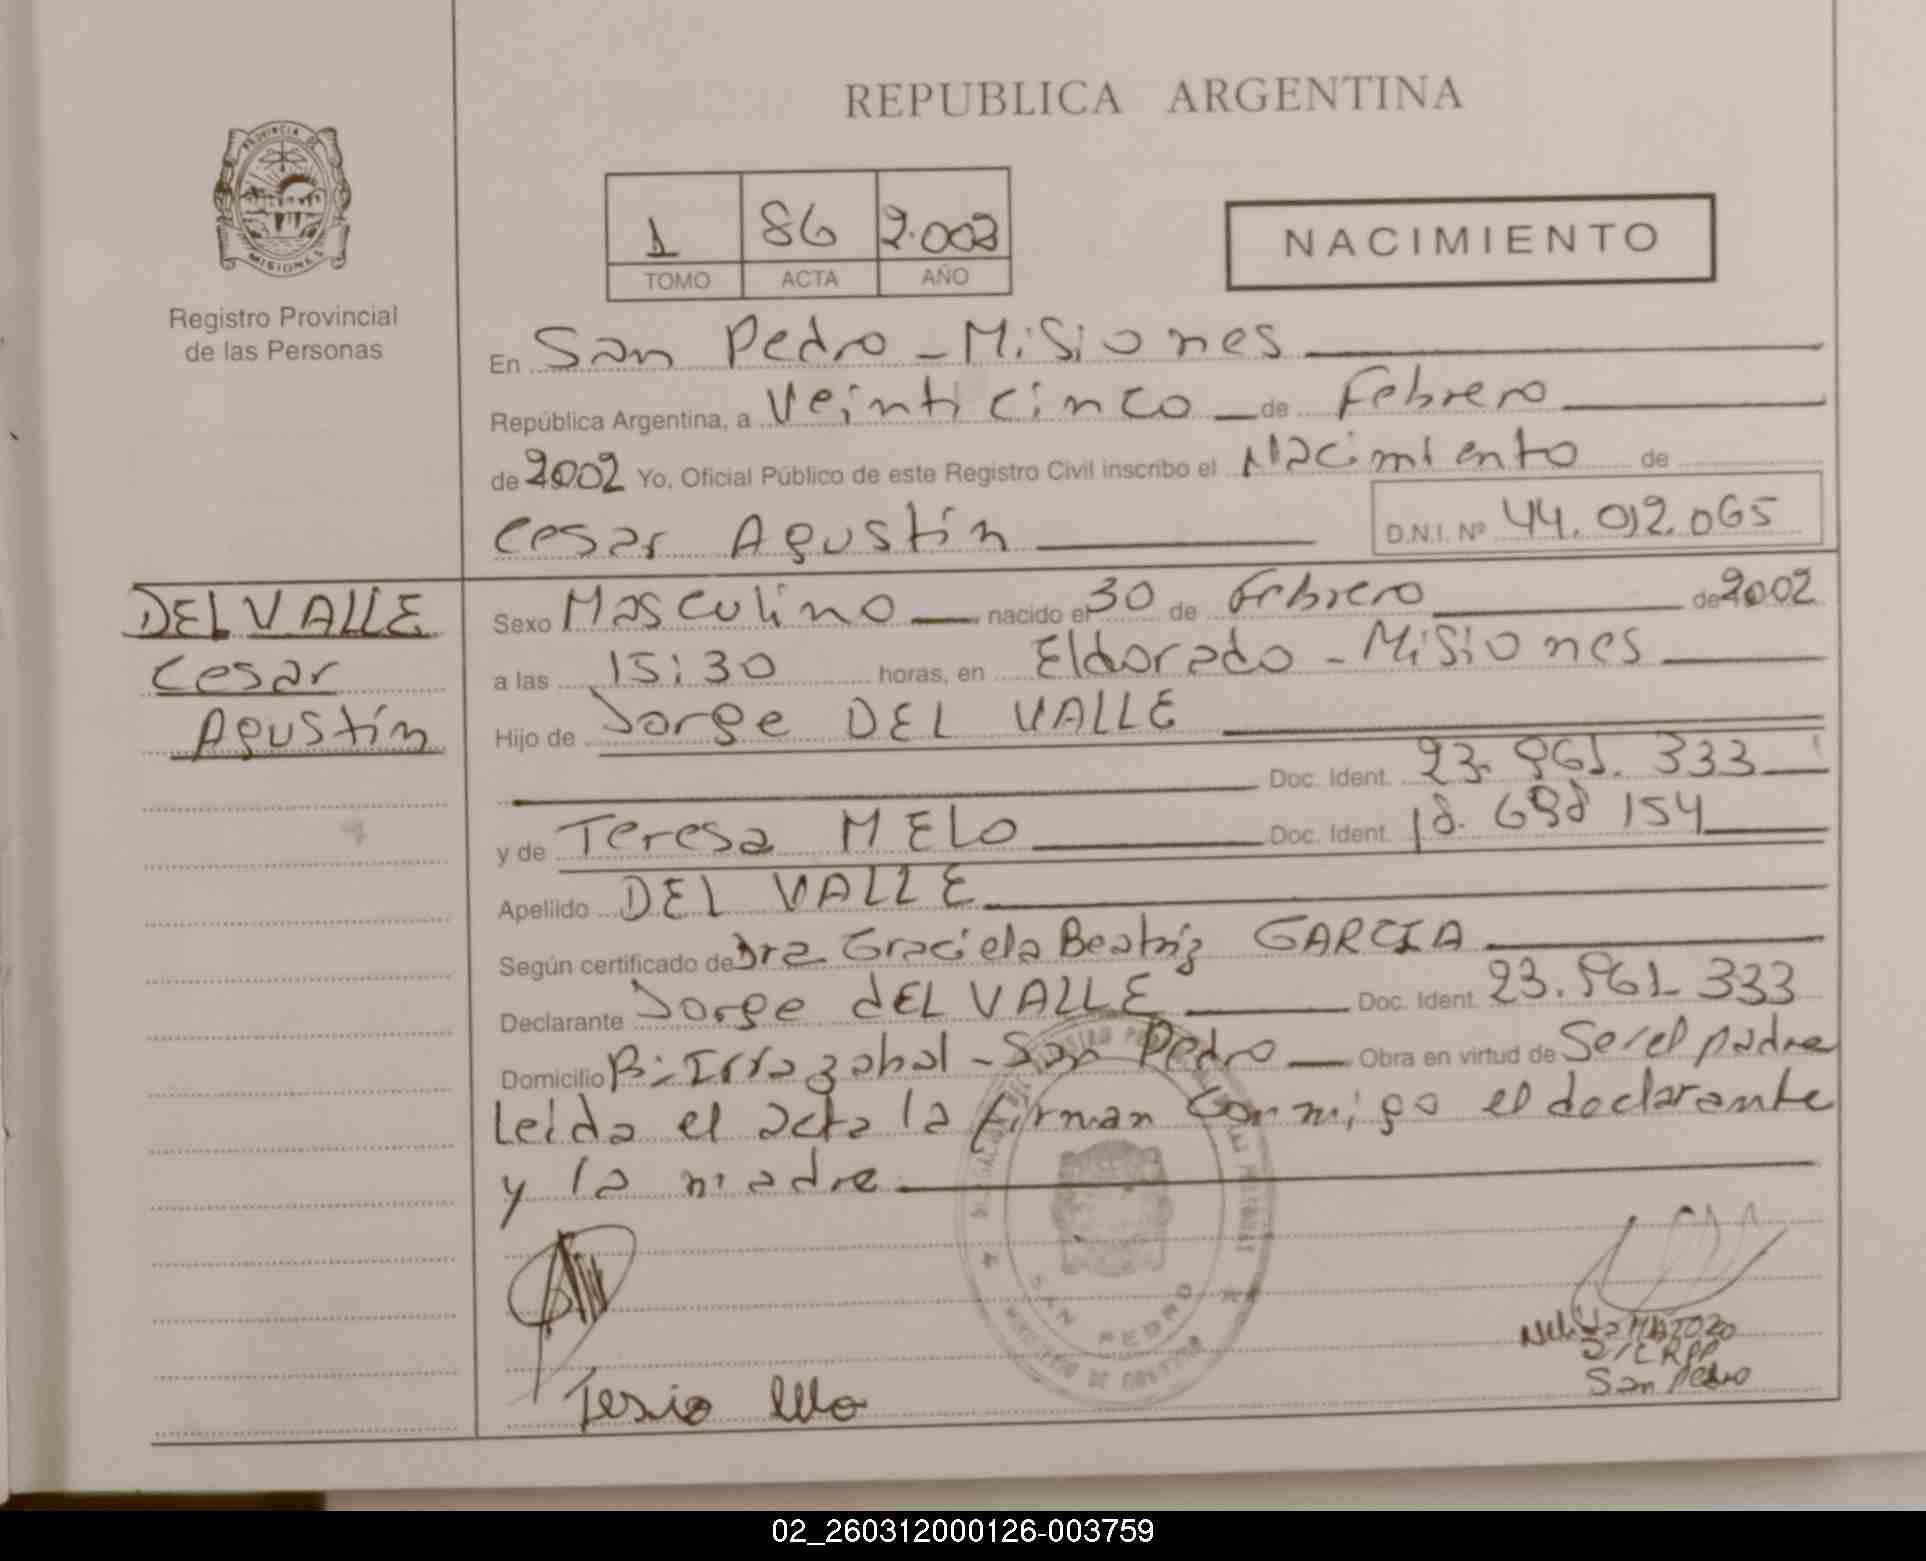 REPUBLICA ARGENTINA
PROVINCIA DE
MISIONES
Registro Provincial
de las Personas
1 86 2.002
TOMO ACTA AÑO
NACIMIENTO
En San Pedro - Misiones
República Argentina, a Veinticinco de Febrero
de 2002 Yo, Oficial Público de este Registro Civil inscribo el Nacimiento de
Cesar Agustín D.N.I. Nº 44.012.065
DEL VALLE
Cesar
Agustín
Sexo Masculino nacido el 30 de Febrero de 2002
a las 15:30 horas, en Eldorado - Misiones
Hijo de Jorge DEL VALLE
Doc. Ident. 23.961.333
y de Teresa MELO Doc. Ident. 18.698 154
Apellido DEL VALLE
Según certificado de Dra Graciela Beatriz GARCIA
Declarante Jorge dEL VALLE Doc. Ident. 23.961 333
Domicilio Bº Irrazabal - San Pedro Obra en virtud de Ser el padre
Leida el acta la firman conmigo el declarante
y la madre
SAN PEDRO
MATOZO
San Pedro
02_260312000126-003759